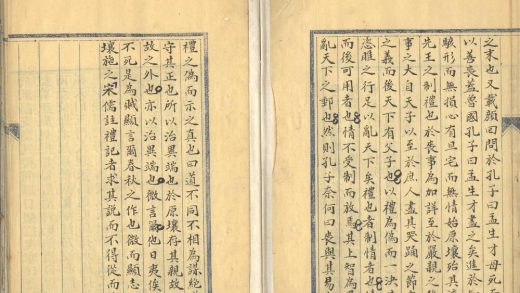 之末也又載顏回問於孔子曰孟生才母死
以善喪蓋魯國孔子曰孟生才盡之矣進於
駭形而無損心有旦宅而無情始原壤殆其
先王之制禮也於喪事為加詳至於嚴親之
事之大自天子以至於庶人盡其哭踊之節
之義而後天下有父子也以禮為偽而一決
恣睢之行足以亂天下矣禮也者制情者也
而後可用者也情不受制而放焉其上智為
亂天下之郵也然則孔子奈何曰喪與其易
禮之偽而示之真也曰道不同不相為謀絕
守其正也所以治異端也於原壤存其親故
故之外也亦以治異端也微言爾他日夷俟
不死是為賊顯言爾春秋之作也微而顯志
壤施之宋儒註禮記者求其說而不得從而